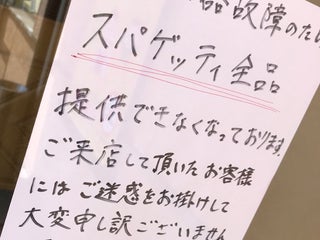 器故障のため
スパゲッティ全品
提供できなくなっております。
ご来店して頂いたお客様
にはご迷惑をお掛けして
大変申し訳ございません